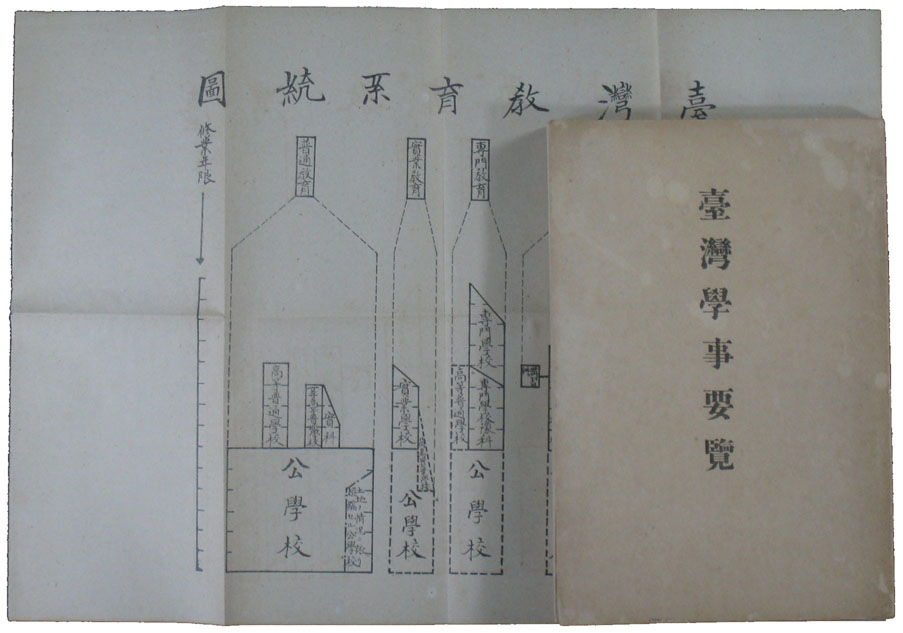 臺灣教育系統圖
臺灣學事要覽
專門教育
專門學校
專門學校豫科
高等普通學校
公學校
實業教育
實業學校
公學校
普通教育
實科
高等普通學校
公學校
修業年限